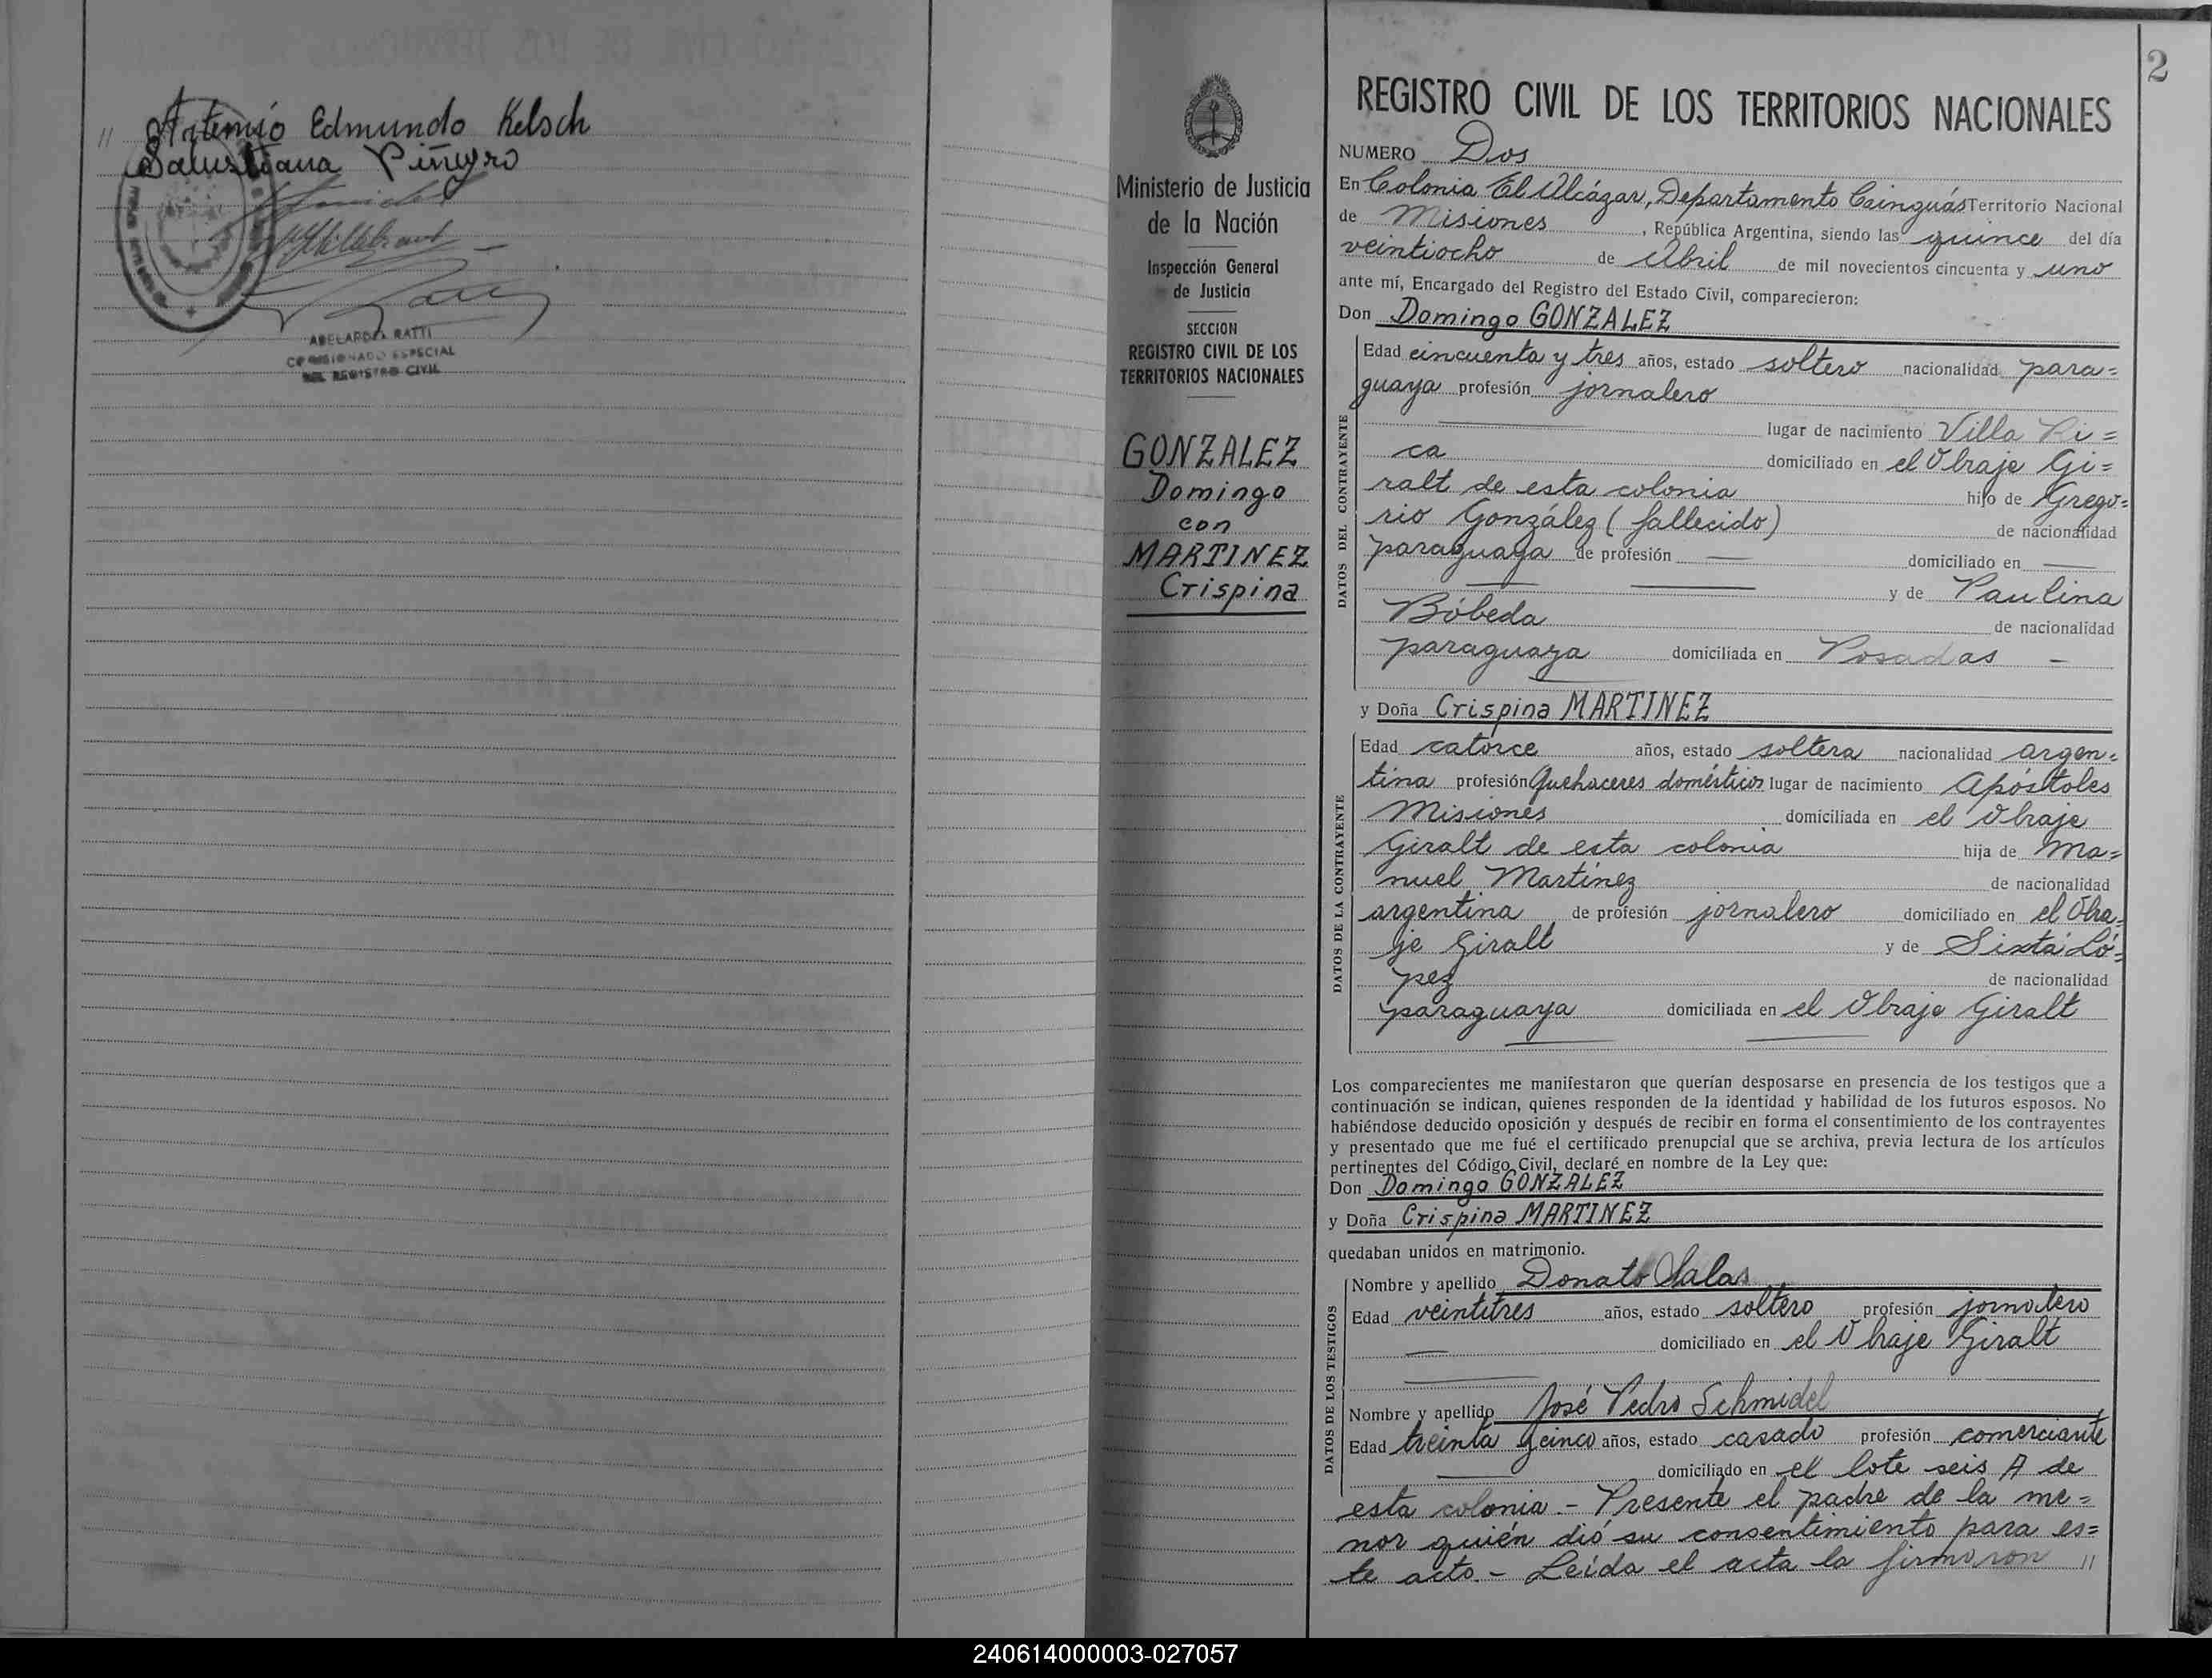 // Artemio Edmundo Kelsch
Salustiana Piñeyro
ABELARDO RATTI
COMISIONADO ESPECIAL
DEL REGISTRO CIVIL
Ministerio de Justicia
de la Nación
Inspección General
de Justicia
SECCION
REGISTRO CIVIL DE LOS
TERRITORIOS NACIONALES
GONZALEZ
Domingo
con
MARTINEZ
Crispina
2
REGISTRO CIVIL DE LOS TERRITORIOS NACIONALES
NUMERO Dos
En Colonia El Alcázar, Departamento Cainguás Territorio Nacional
de Misiones, República Argentina, siendo las quince del día
veintiocho de Abril de mil novecientos cincuenta y uno
ante mí, Encargado del Registro del Estado Civil, comparecieron:
Don Domingo GONZALEZ
DATOS DEL CONTRAYENTE
Edad cincuenta y tres años, estado soltero nacionalidad para=
guaya profesión jornalero
lugar de nacimiento Villa Ri=
ca domiciliado en el Obraje Gi=
ralt de esta colonia hijo de Grego=
rio González (fallecido) de nacionalidad
paraguaya de profesión — domiciliado en —
y de Paulina
Bóbeda de nacionalidad
paraguaya domiciliada en Posadas -
y Doña Crispina MARTINEZ
DATOS DE LA CONTRAYENTE
Edad catorce años, estado soltera nacionalidad argen=
tina profesión Quehaceres domésticos lugar de nacimiento Apóstoles
Misiones domiciliada en el Obraje
Giralt de esta colonia hija de Ma=
nuel Martínez de nacionalidad
argentina de profesión jornalero domiciliado en el Obra=
je Giralt y de Sixta Ló=
pez de nacionalidad
paraguaya domiciliada en el Obraje Giralt
Los comparecientes me manifestaron que querían desposarse en presencia de los testigos que a
continuación se indican, quienes responden de la identidad y habilidad de los futuros esposos. No
habiéndose deducido oposición y después de recibir en forma el consentimiento de los contrayentes
y presentado que me fué el certificado prenupcial que se archiva, previa lectura de los artículos
pertinentes del Código Civil, declaré en nombre de la Ley que:
Don Domingo GONZALEZ
y Doña Crispina MARTINEZ
quedaban unidos en matrimonio.
DATOS DE LOS TESTIGOS
Nombre y apellido Donato Salas
Edad veintitres años, estado soltero profesión jornalero
domiciliado en el Obraje Giralt
Nombre y apellido José Pedro Schmidel
Edad treinta y cinco años, estado casado profesión comerciante
domiciliado en el lote seis A de
esta colonia - Presente el padre de la me=
nor quién dió su consentimiento para es=
te acto. - Leída el acta la firmaron //
240614000003-027057